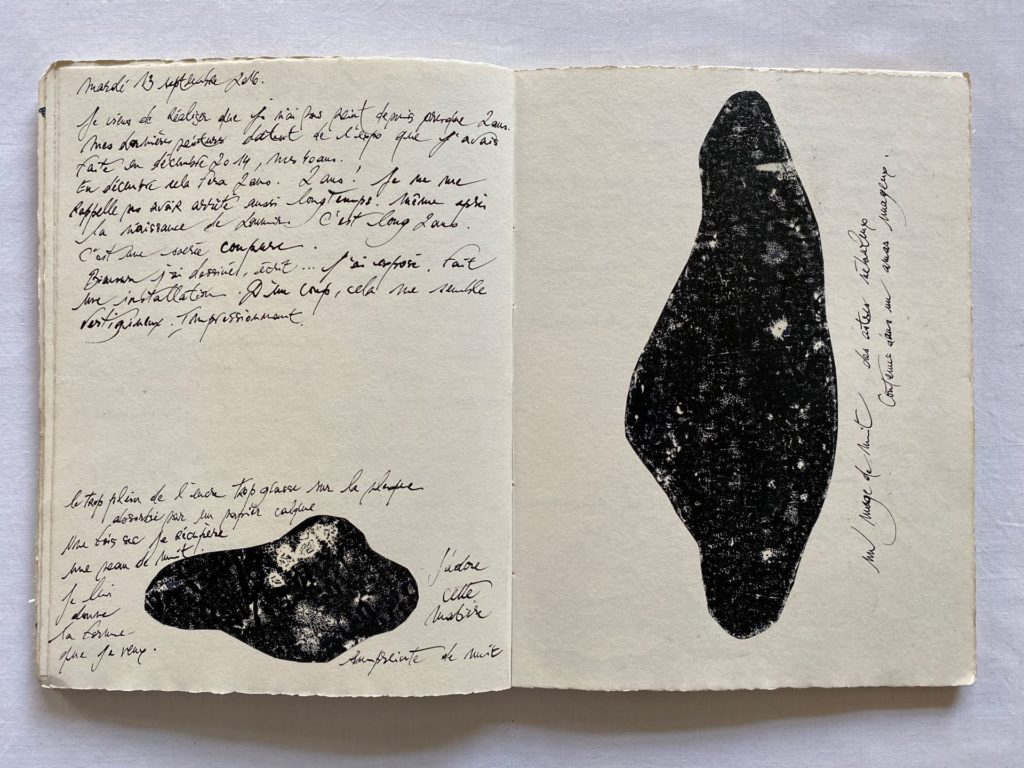 mardi 13 septembre 2016.
Je viens de réaliser que je n'ai pas peint depuis presque 2 ans.
Mes dernières peintures datent de l'expo que j'avais
faite en décembre 2014, mes 40 ans.
En décembre cela fera 2 ans. 2 ans! Je ne me
rappelle pas avoir arrêté aussi longtemps. même après
la naissance de C'est long 2 ans.
C'est une sacrée coupure.
j'ai dessiné, écrit... j'ai exposé, fait
une installation. D'un coup, cela me semble
vertigineux. Impressionnant.
le trop plein de l'encre trop grasse sur la plaque
absorbée par un papier calque
Une fois sec je récupère
une peau de nuit.
Je lui
donne
la forme
que je veux.
J'adore
cette
matière
empreinte de nuit
un nuage de nuit des astres nébuleux
contenus dans un amas nuageux.